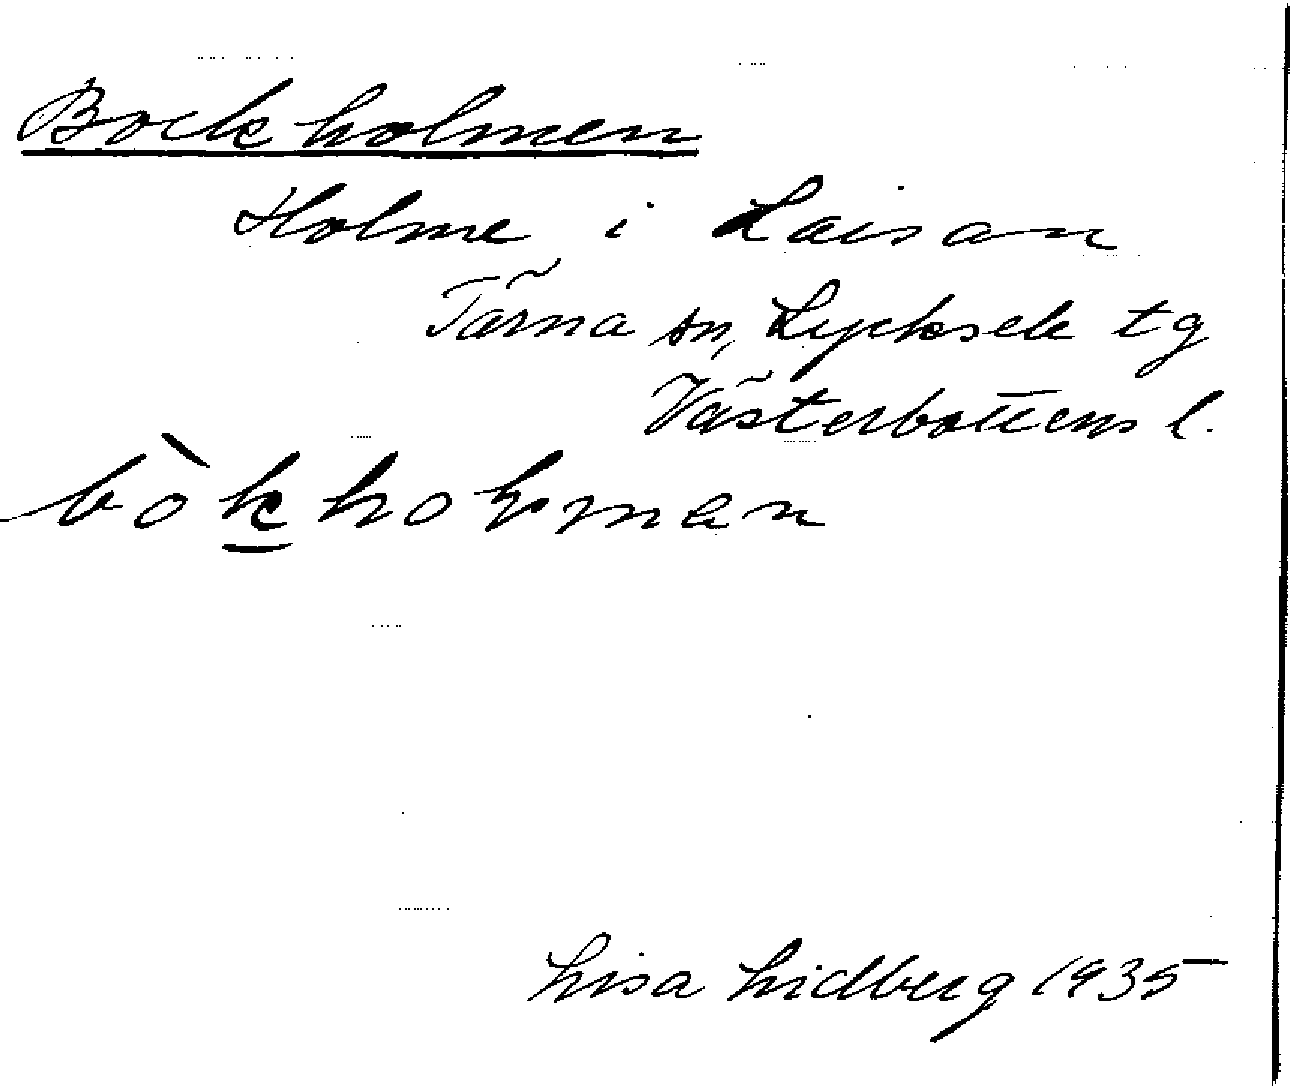 Bockholmen
Holme i Laisan
Tärna sn, Lycksele tg
Västerbottens l.
bòk holmen
Lisa Lidberg 1935